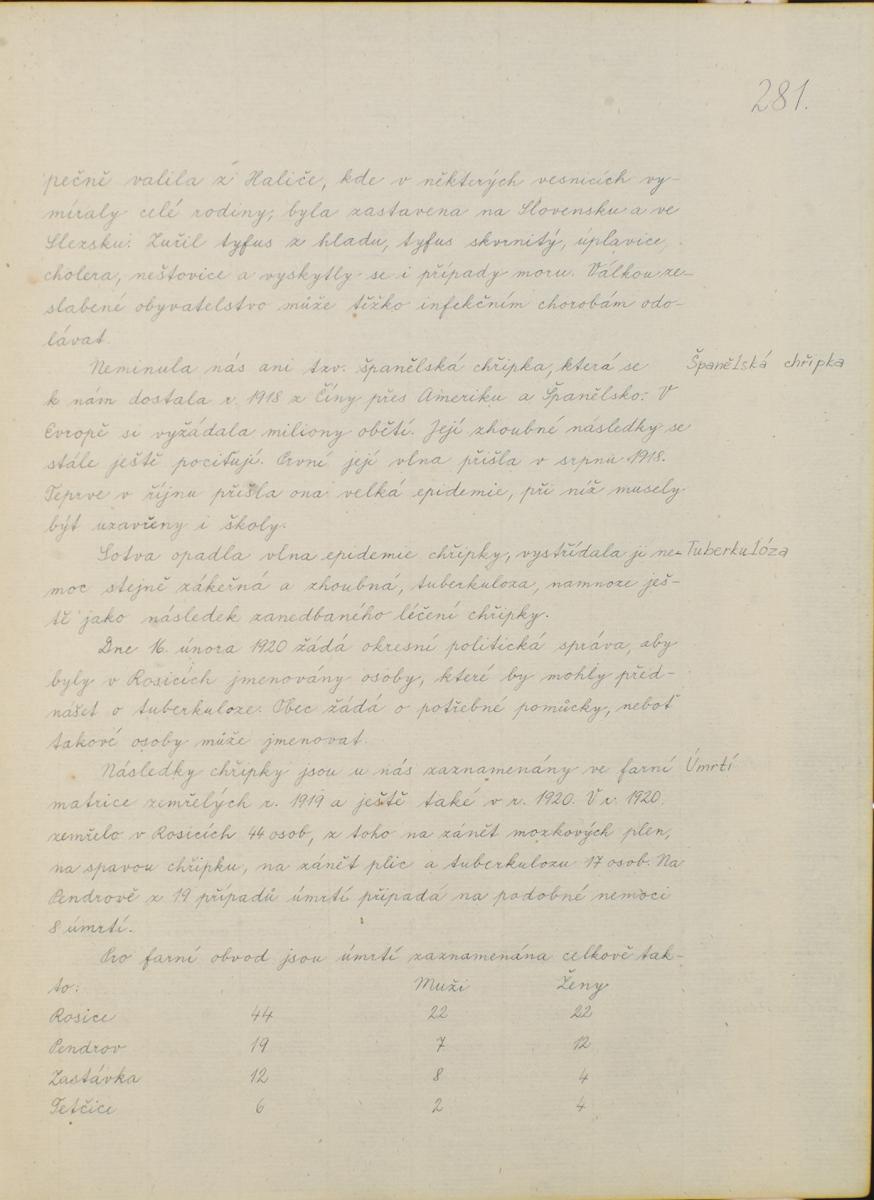 281.
pečně valila z Haliče, kde v některých vesnicích vy-
míraly celé rodiny; byla zastavena na Slovensku a ve
Slezsku. Zuřil tyfus z hladu, tyfus skvrnitý, úplavice,
cholera, neštovice a vyskytly se i případy moru. Válkou ze-
slabené obyvatelstvo může těžko infekčním chorobám odo-
lávat.
Neminula nás ani tzv. španělská chřipka, která se
Španělská chřipka
k nám dostala r. 1918 z Číny přes Ameriku a Španělsko. V
Evropě si vyžádala miliony obětí. Její zhoubné následky se
stále ještě pociťují. První její vlna přišla v srpnu 1918.
Teprve v říjnu přišla ona velká epidemie, při níž musely
být uzavřeny i školy.
Sotva opadla vlna epidemie chřipky, vystřídala ji ne-
Tuberkulóza
moc stejně zákeřná a zhoubná, tuberkuloza, namnoze ješ-
tě jako následek zanedbaného léčení chřipky.
Dne 16. února 1920 žádá okresní politická správa, aby
byly v Rosicích jmenovány osoby, které by mohly před-
nášet o tuberkuloze. Obec žádá o potřebné pomůcky, neboť
takové osoby může jmenovat.
Následky chřipky jsou u nás zaznamenány ve farní
Úmrtí
matrice zemřelých r. 1919 a ještě také v r. 1920. V r. 1920
zemřelo v Rosicích 44 osob, z toho na zánět mozkových plen,
na spavou chřipku, na zánět plic a tuberkulozu 17 osob. Na
Pendrově z 19 případů úmrtí připadá na podobné nemoci
8 úmrtí.
Pro farní obvod jsou úmrtí zaznamenána celkově tak-
to: Muži Ženy
Rosice 44 22 22
Pendrov 19 7 12
Zastávka 12 8 4
Tetčice 6 2 4